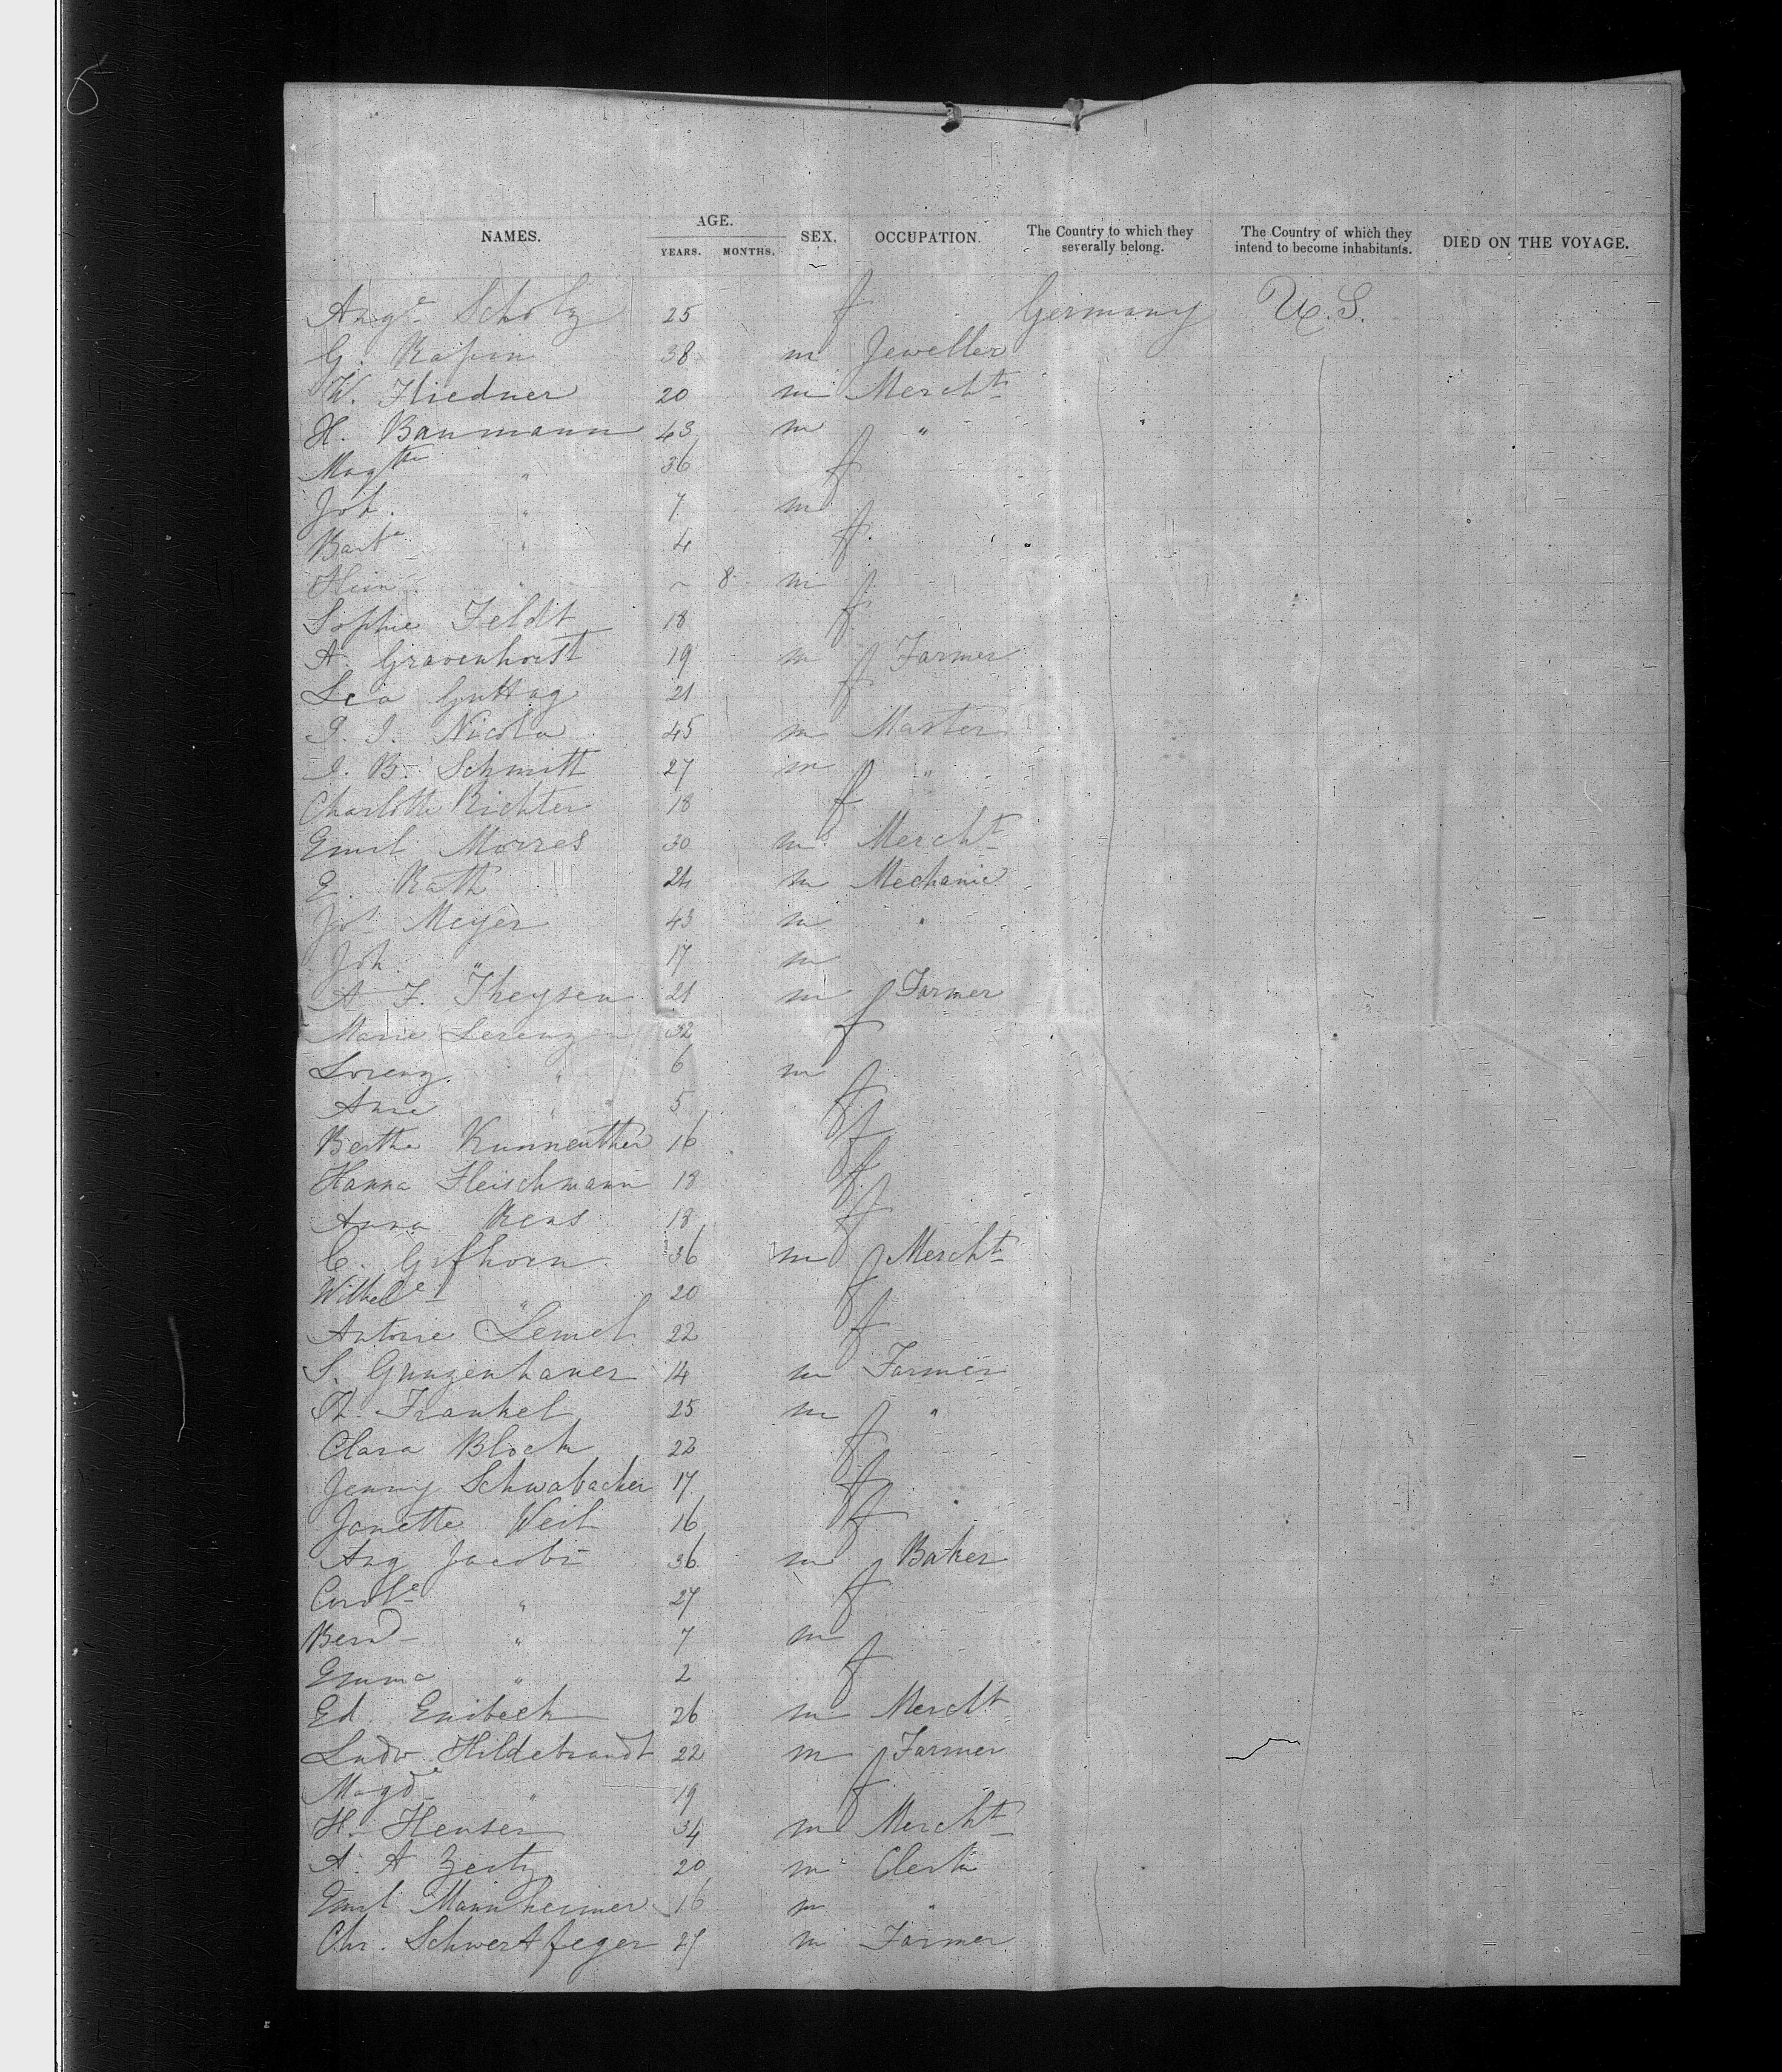 NAMES. AGE. YEARS. MONTHS. SEX. OCCUPATION. The Country to which they severally belong. The Country of which they intend to become inhabitants. DIED ON THE VOYAGE.
Auge Scholz 25 f Germany U.S.
G. 38 m Jeweller
W. Fliedner 20 m Mercht
H. Baumann 43 m "
36 f
Joh. " 7 m
Barba " 4 f
Hein " ~ 8 m
Sophie Feldt 18 f
A. Gravenhorst 19 m Farmer
Lea Guttag 21 f
Nicola 45 m Master
J. B. Schmitt 27 m "
Charlotte Richter 18 f
Emil Morres 30 m Mercht
E. Rath 24 m Mechanic
Jos Meyer 43 m "
Joh. " 17 m
A F. Theysen 21 m Farmer
Marie Lorenzen 32 f
Lorenz " 6 m
Ane " 5 f
Bertha Kunreuther 16 f
Hanna Fleischmann 18 f
Anna Rens 18 f
C. Gifhorn 36 m Mercht
Wilhele " 20 f
Antonie 22 f
S. Gunzenhauer 14 m Farmer
Th. Frankel 25 m "
Clara Bloch 22 f
Jenny Schwabacher 17 f
Janette Weil 16 f
Aug Jacobi 36 m Baker
Carole " 27 f
Bernd " 7 m
Emma " 2 f
Ed. 26 m Mercht
Ludw. Hildebrandt 22 m Farmer
Magde " 19 f
H. Heuser 34 m Mercht
A. A Zertz 20 m Clerk
Emil Mannheimer 16 m "
Chr. Schwertfeger 27 m Farmer